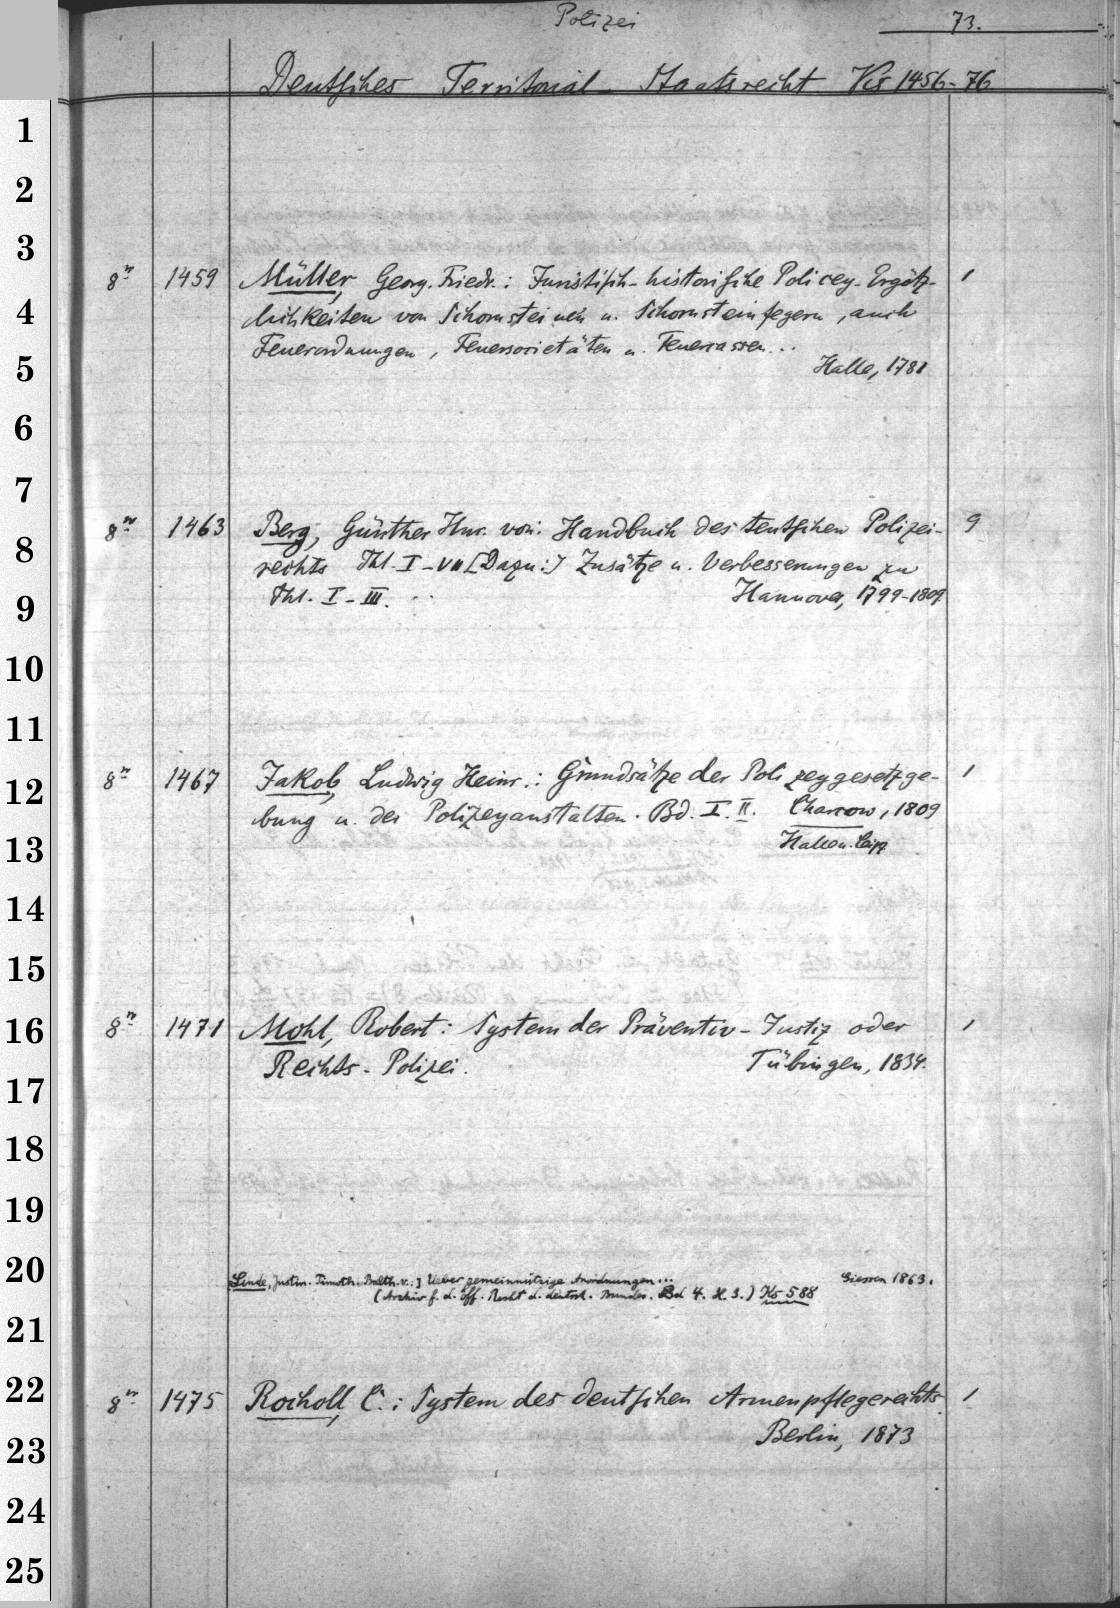 Polizei 73.
Deutsches Territorial-Staatsrecht Ks 1456-76
1
2
3
8º 1459 Müller, Georg. Friedr.: Juristisch-historische Policey-Ergötz- 1
4 lichkeiten von Schornsteinen u. Schornsteinfegern, auch
Feuerordnungen, Feuersocietäten u. Feuercassen...
5 Halle, 1781
6
7
8º 1463 Berg, Günther Hnr. von: Handbuch des teutschen Polizei- 9
8 rechts Thl. I-VII [Dazu:] Zusätze u. Verbesserungen zu
9 Thl. I-III. .. Hannover, 1799-1809
10
11
8º 1467 Jakob, Ludwig Heinr.: Grundsätze der Polizeygesetzge- 1
12 bung u. der Polizeyanstalten. Bd. I. II. Charcow, 1809
13 Halle u. Leipz
14
15
16 8º 1471 Mohl, Robert: System der Präventiv-Justiz oder 1
Rechts-Polizei. Tübingen, 1834.
17
18
19
20 Linde, Justin. Timoth. Balth. v.:] Ueber gemeinnützige Anordnungen... Giessen 1863.
(Archiv f. d. öff. Recht d. deutsch. Bundes. Bd 4. H. 3.) Ks 588
21
22 8º 1475 Rocholl, C.: System des deutschen Armenpflegerechts. 1
23 Berlin, 1873
24
25